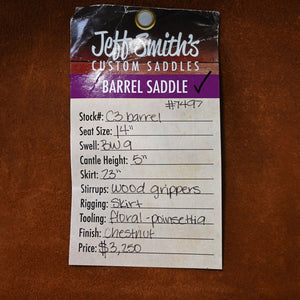 Jeff Smith's
CUSTOM SADDLES
BARREL SADDLE ✓
#7497
Stock#: C3 barrel
Seat Size: 14"
Swell: BW 9
Cantle Height: 5"
Skirt: 23"
Stirrups: wood grippers
Rigging: Skirt
Tooling: floral - poinsettia
Finish: Chestnut
Price: $3,250